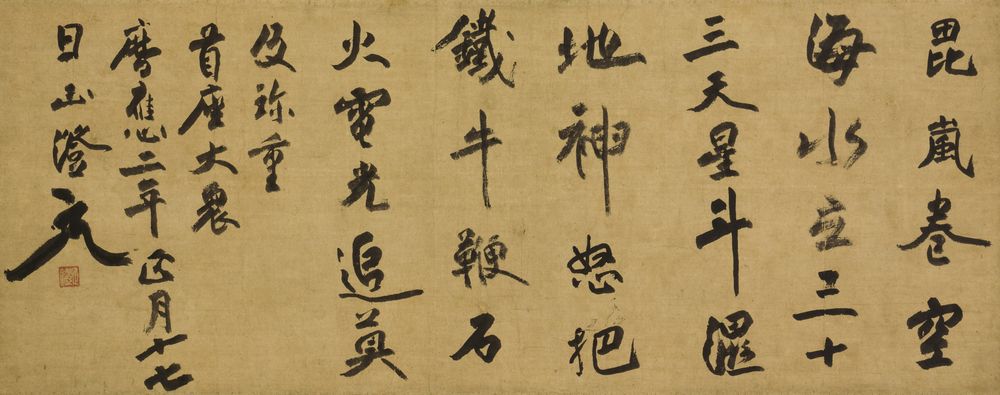 毘嵐巻空
海水立三十
三天星斗濕
地神怒把
鐵牛鞭石
火電光追莫
及珍重
首座大衆
暦應二年正月十七
日正澄